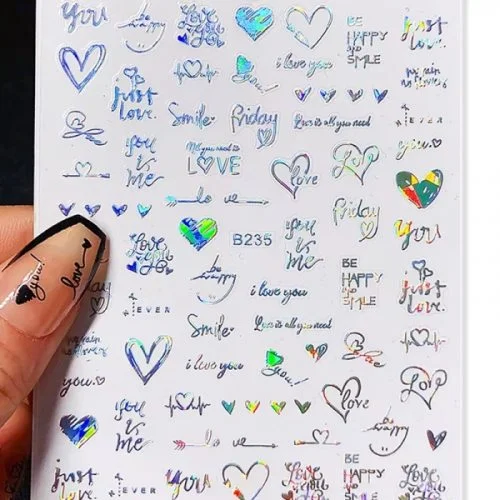 You
be happy
Love you
BE HAPPY and SMILE
just love.
i love you
just love.
you!
Smile
friday
Love is all you need
4 EVER
you is me
All you need is
LOVE
love
Love
you.
lo ve
friday
You
Love you
B235
you is me
be happy
BE HAPPY and SMILE
just love.
you!
love
i love you
4 EVER
Smile
Love is all you need
i love you
you!
you.
you is me
love
Love
lo ve
be happy
just love.
4 EVER
You
Love you
BE HAPPY and
Love you